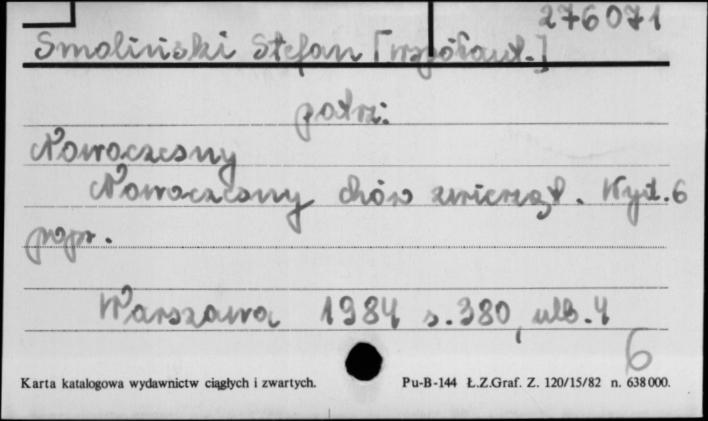 276071
Smoliński Stefan [współaut.]
patrz:
Nowoczesny
Nowoczesny chów zwierząt. Wyd. 6
popr.
Warszawa 1984 s. 380, ulb. 4
6
Karta katalogowa wydawnictw ciągłych i zwartych. Pu-B-144 Ł.Z.Graf. Z. 120/15/82 n. 638000.